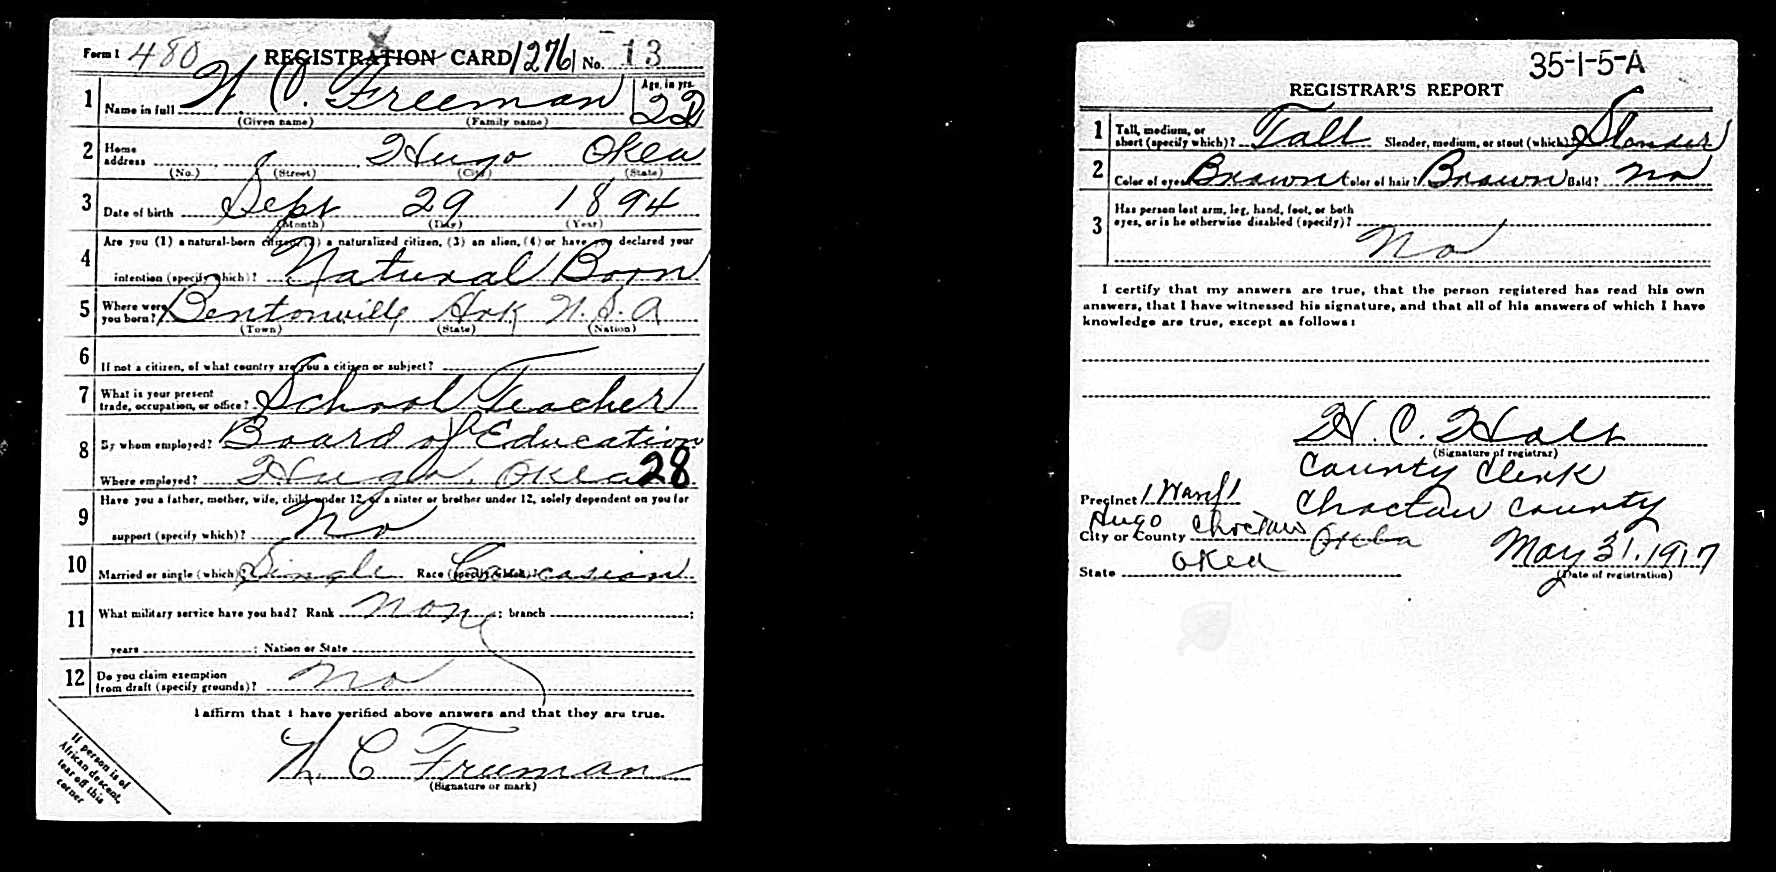 Form 1 480 REGISTRATION CARD 1276 No. 13
1 Name in full N. C. Freeman Age, in yrs. 22
(Given name) (Family name)
2 Home address Hugo Okla
(No.) (Street) (City) (State)
3 Date of birth Sept 29 1894
(Month) (Day) (Year)
4 Are you (1) a natural-born citizen, (2) a naturalized citizen, (3) an alien, (4) or have you declared your
intention (specify which)? Natural Born
5 Where were you born? Bentonville Ark U.S.A
(Town) (State) (Nation)
6 If not a citizen, of what country are you a citizen or subject?
7 What is your present trade, occupation, or office? School Teacher
8 By whom employed? Board of Education
Where employed? Hugo, Okla 28
9 Have you a father, mother, wife, child under 12, or a sister or brother under 12, solely dependent on you for
support (specify which)? No
10 Married or single (which)? Single Race (specify which)? Caucasian
11 What military service have you had? Rank None ; branch ;
years ; Nation or State
12 Do you claim exemption from draft (specify grounds)? No
I affirm that I have verified above answers and that they are true.
N. C Freeman
(Signature or mark)
If person is of
African descent,
tear off this
corner
35-1-5-A
REGISTRAR'S REPORT
1 Tall, medium, or short (specify which)? Tall Slender, medium, or stout (which)? Slender
2 Color of eyes Brown Color of hair? Brown Bald? No
3 Has person lost arm, leg, hand, foot, or both
eyes, or is he otherwise disabled (specify)?
No
I certify that my answers are true, that the person registered has read his own
answers, that I have witnessed his signature, and that all of his answers of which I have
knowledge are true, except as follows:
H. C. Holt
(Signature of registrar)
County Clerk
Precinct 1 Ward 1 Choctaw County
Hugo
City or County Choctaw Okla May 31, 1917
State Okla (Date of registration)